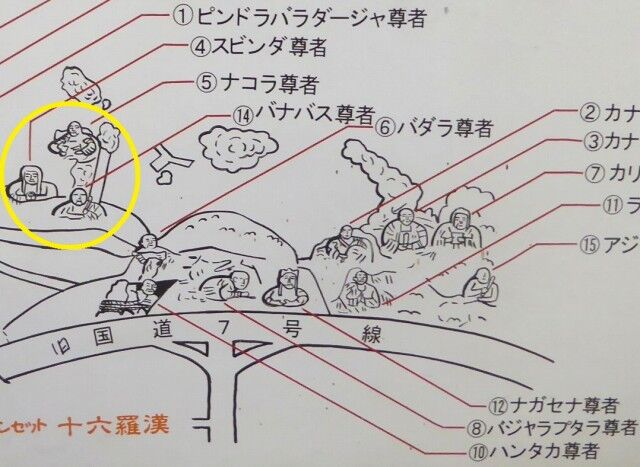 ①ピンドラバラダージャ尊者
④スビンダ尊者
⑤ナコラ尊者
⑭バナバス尊者
⑥バダラ尊者
②カナ
③カナ
⑦カリ
⑪ラ
⑮アジ
旧国道7号線
⑫ナガセナ尊者
ンゼット 十六羅漢
⑧バジャラプタラ尊者
⑩ハンタカ尊者